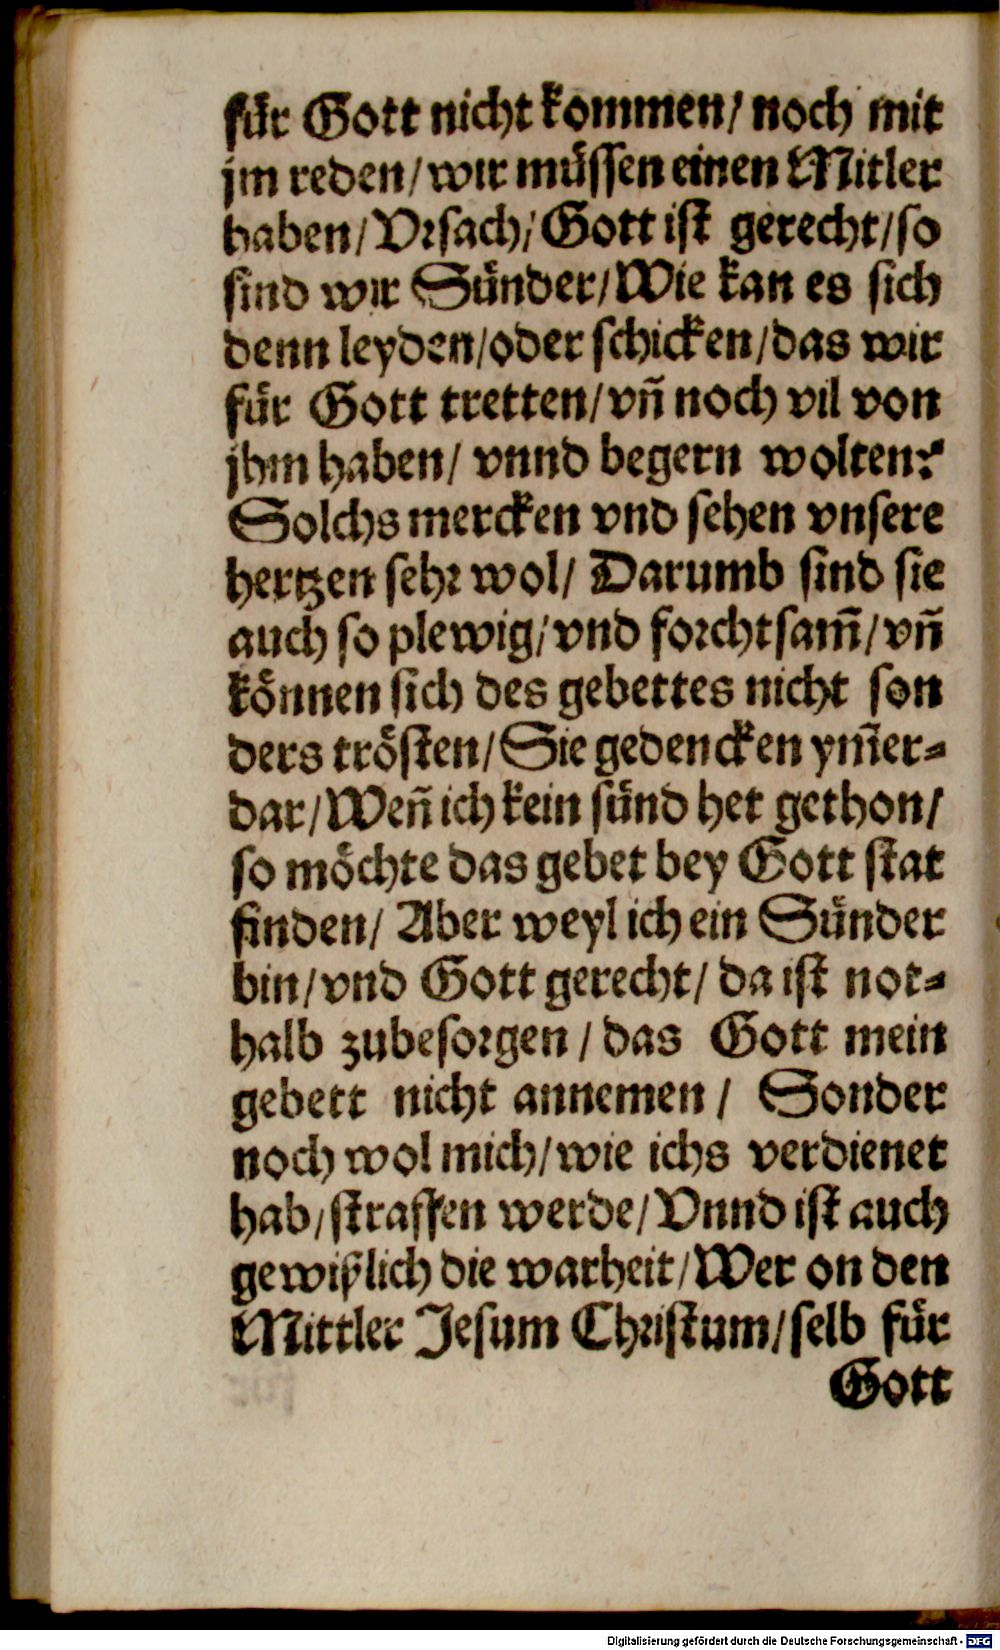 für Gott nicht kommen/ noch mit
jm reden/ wir müssen einen Mitler
haben/ Vrsach/ Gott ist gerecht/ so
sind wir Sünder/ Wie kan es sich
denn leyden/ oder schicken/ das wir
für Gott tretten/ vñ noch vil von
jhm haben/ vnnd begern wolten?
Solchs mercken vnd sehen vnsere
hertzen sehr wol/ Darumb sind sie
auch so plewig/ vnd forchtsam̃/ vñ
können sich des gebettes nicht son
ders trösten/ Sie gedencken ym̃er-
dar/ Weñ ich kein sünd het gethon/
so möchte das gebet bey Gott stat
finden/ Aber weyl ich ein Sünder
bin/ vnd Gott gerecht/ da ist not-
halb zubesorgen/ das Gott mein
gebett nicht annemen/ Sonder
noch wol mich/ wie ichs verdienet
hab/ straffen werde/ Vnnd ist auch
gewißlich die warheit/ Wer on den
Mittler Jesum Christum/ selb für
Gott
Digitalisierung gefördert durch die Deutsche Forschungsgemeinschaft - DFG